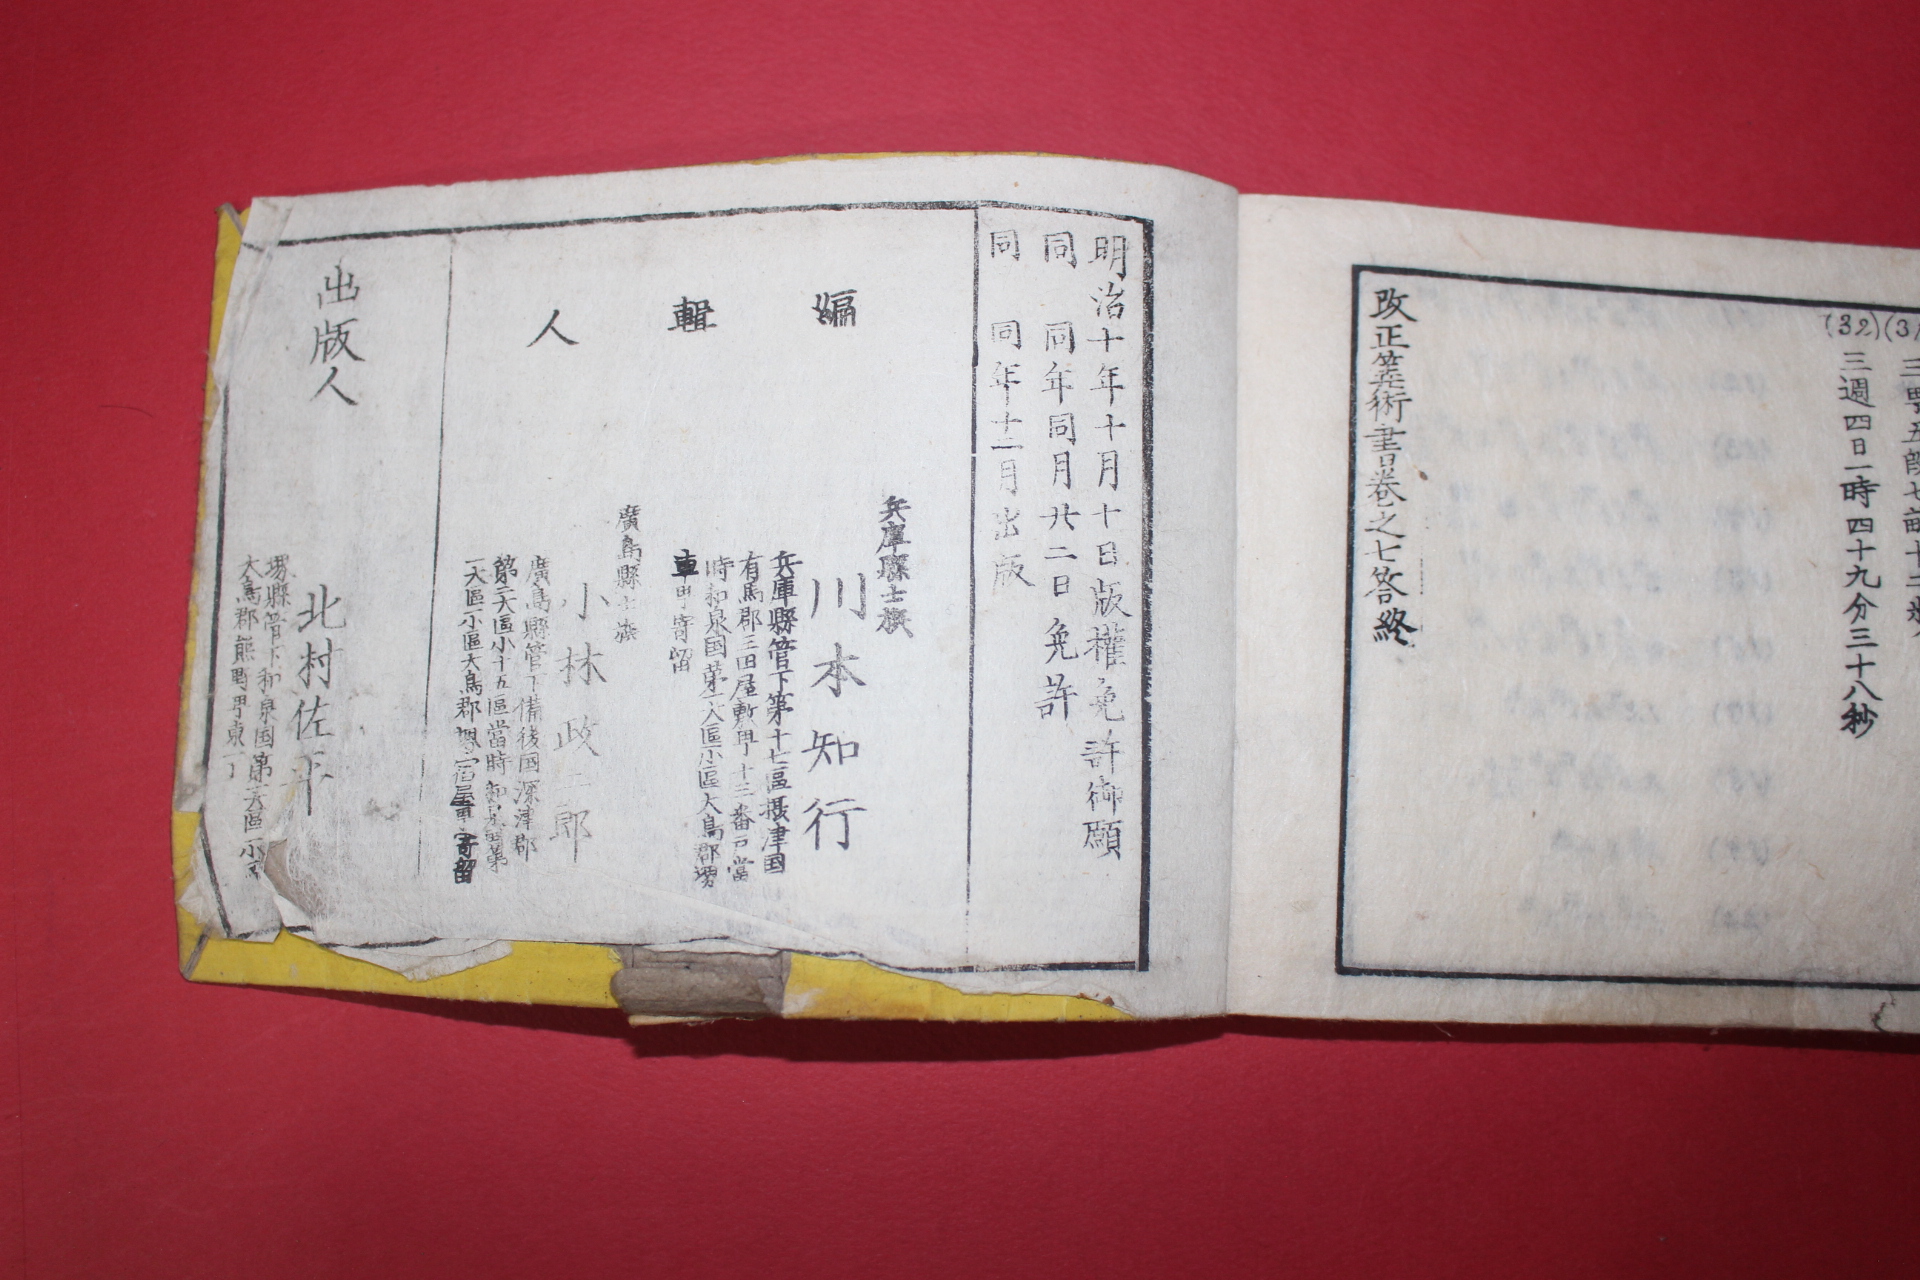 (31)
(32) 三週四日一時四十九分三十八秒
改正筭術書卷之七答終
明治十年十月十日版權免許御願
同 同年同月廿二日免許
同 同年十二月出版
編輯人
兵庫縣士族
川本知行
兵庫縣管下第十七區摂津国
有馬郡三田屋敷町十三番戸當
時和泉国第一大區小區大鳥郡堺
車町寄留
廣島縣士族
小林政二郎
廣島縣管下備後国深津郡
第二大區小十五區當時和泉国第
一大區一小區大鳥郡堺宿屋町寄留
出版人
北村佐平
堺縣管下和泉国第一大區一小區
大鳥郡熊野町東一丁